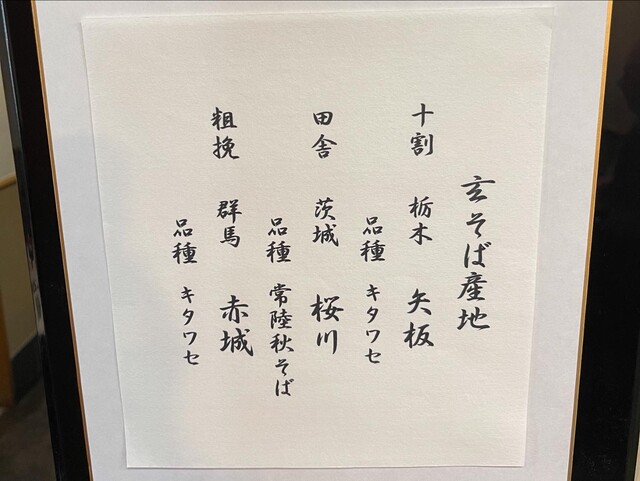 玄そば産地
十割 栃木 矢板
品種 キタワセ
田舎 茨城 桜川
品種 常陸秋そば
粗挽 群馬 赤城
品種 キタワセ